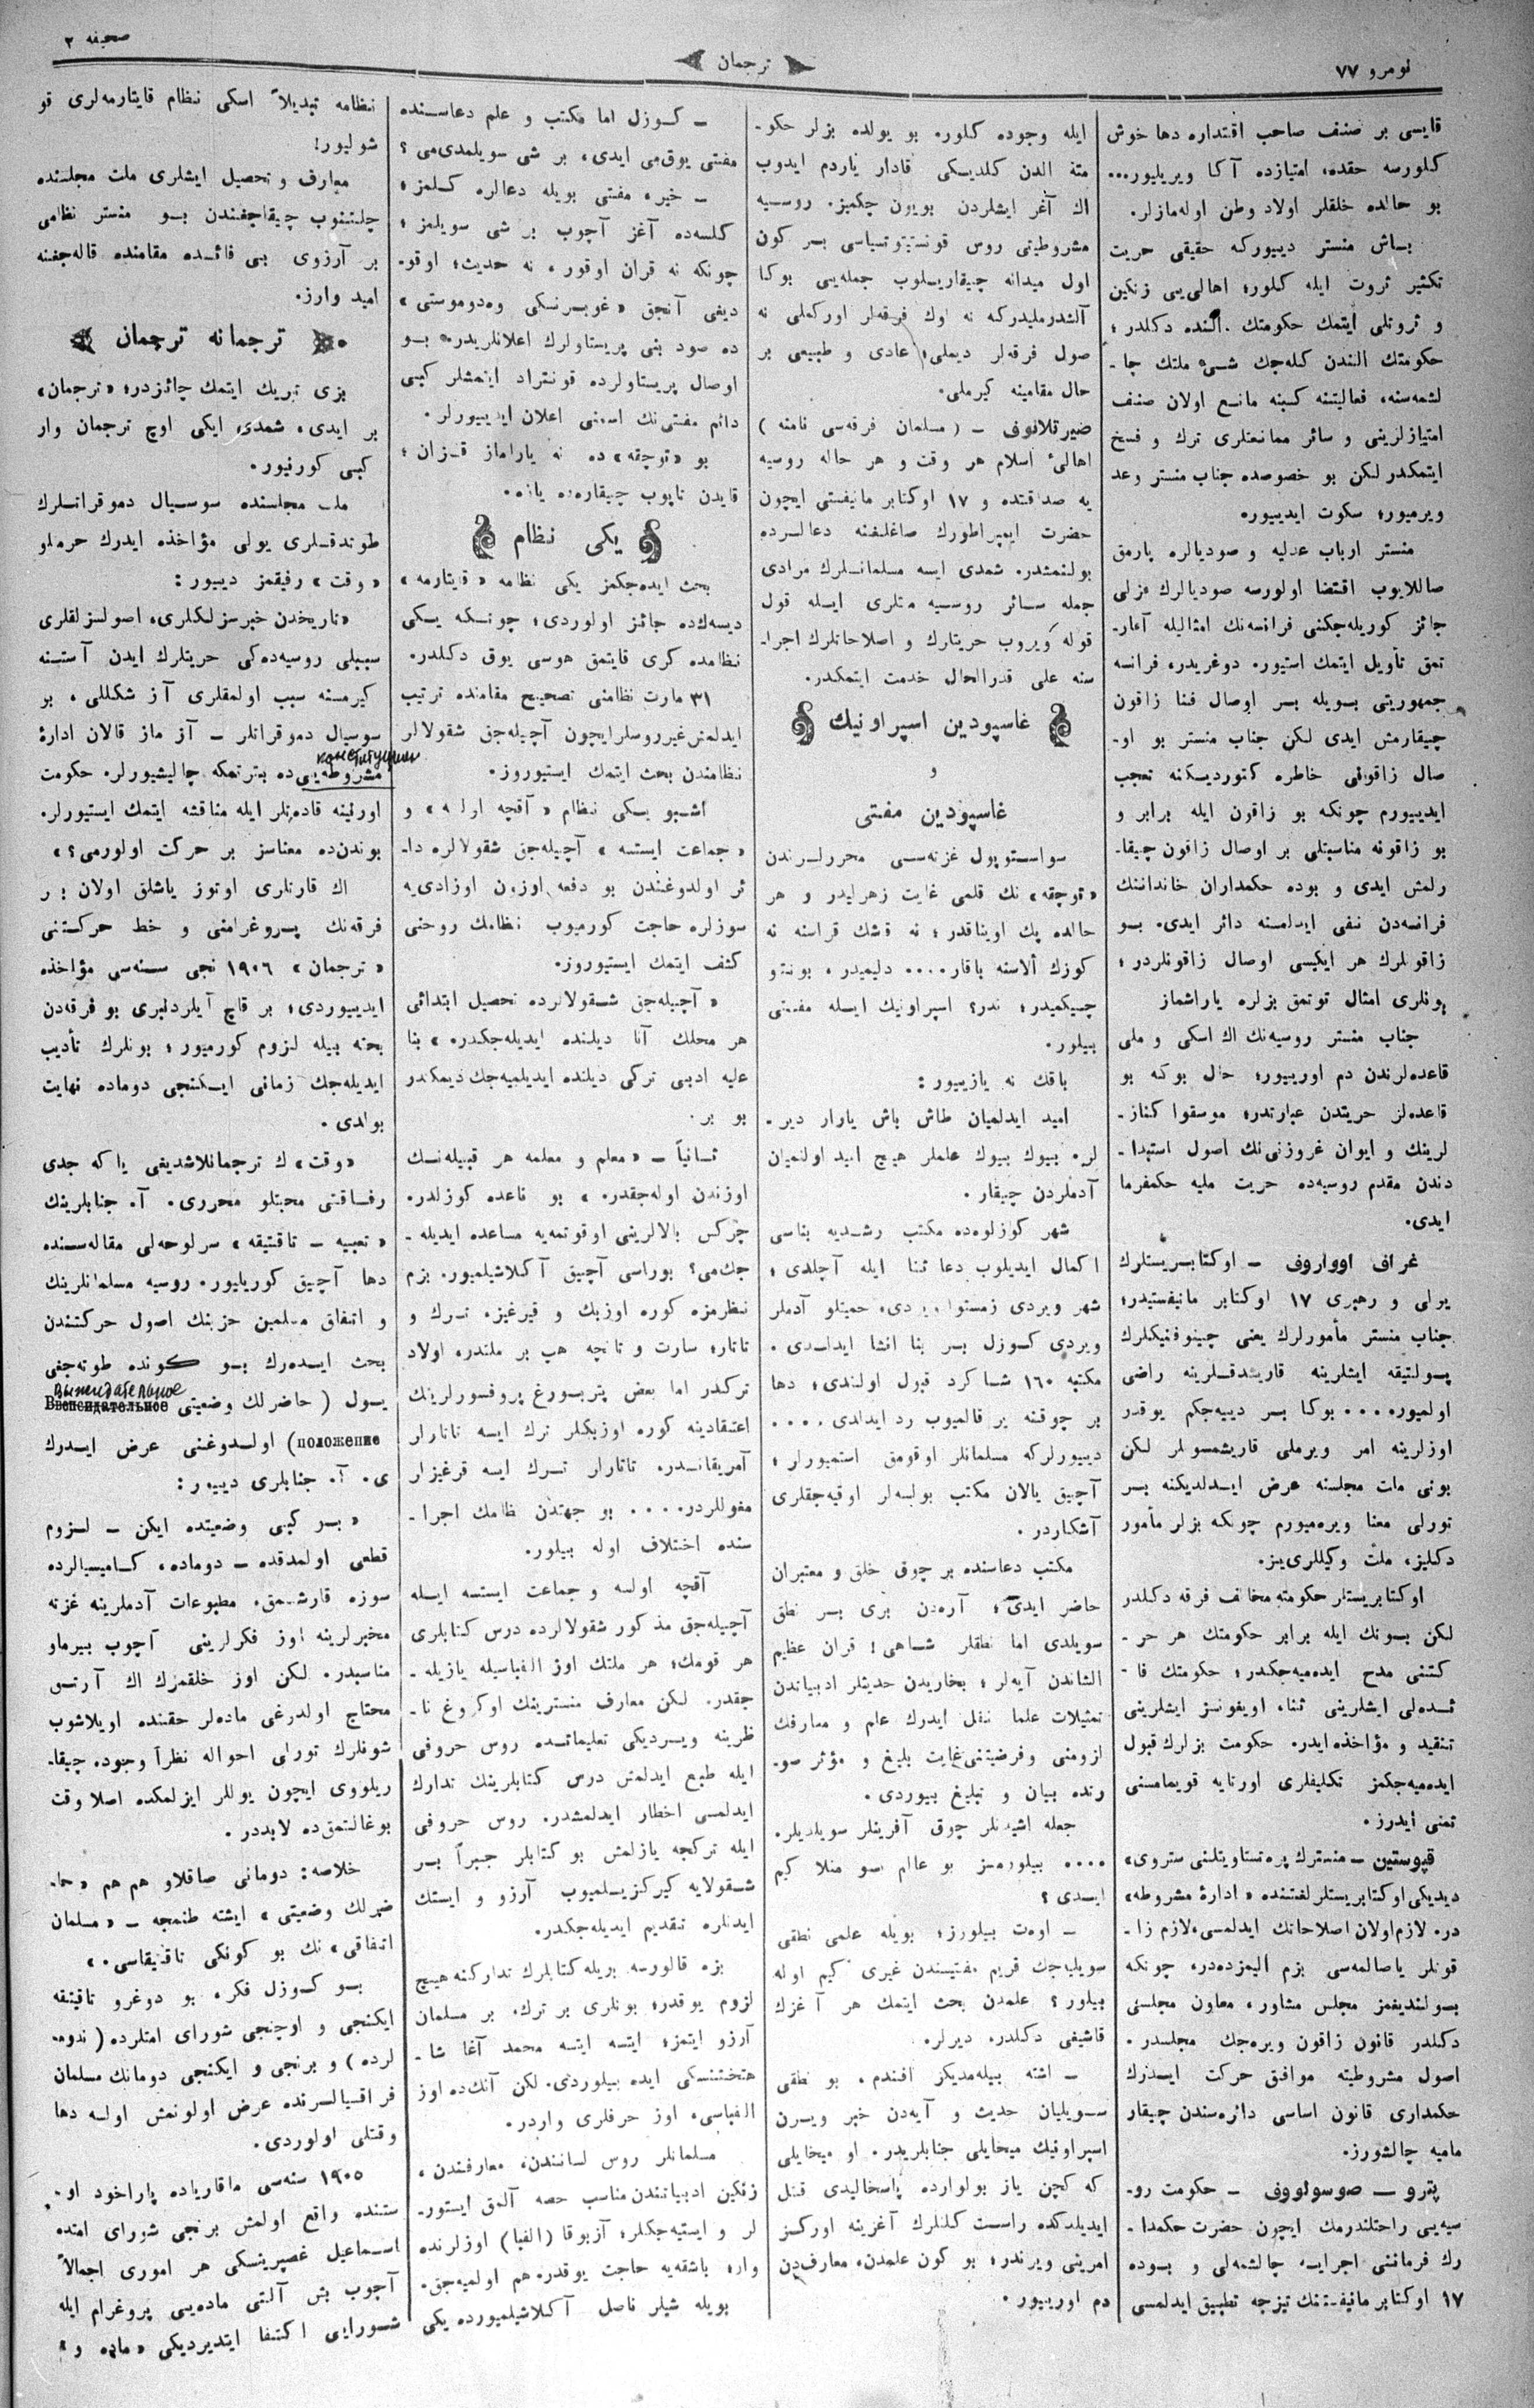 نومرو ۷۷
ترجمان
صحیفه ۲
قایسی بر صنف صاحب اقتداره دها خوش
کلورسه حقده، امتیازده آکا ویریلیور...
بو حالده خلقلر اولاد وطن اوله‌مازلر.
باش منستر دییورکه حقیقی حریت
تکثیر ثروت ایله کلور؛ اهالی‌یی زنکین
و ثروتلی ایتمك حکومتك النده دکلدر؛
حکومتك الندن کله‌جك شیء ملتك چا-
لشمه‌سنه، فعالیتنه کسبنه مانع اولان صنف
امتیازلرینی و سائر ممانعتلری ترك و فسخ
ایتمکدر لکن بو خصوصده جناب منستر وعد
ویرمیور؛ سکوت ایدییور.
منستر ارباب عدلیه و صودیالره پارمق
صاللایوب اقتضا اولورسه صودیالرك عزلی
جائز کوریله‌جکنی فرانسه‌نك امثالیله آکلر-
تمق تأویل ایتمك استیور. دوغریدر، فرانسه
جمهوریتی بویله بر اوصال فنا زاقون
چیقارمش ایدی لکن جناب منستر بو او-
صال زاقونی خاطره کتوردیکنه تعجب
ایدییورم چونکه بو زاقون ایله برابر و
بو زاقونه مناسبتلی بر اوصال زاقون چیقا-
رلمش ایدی و بوده حکمداران خانداننك
فرانسه‌دن نفی ایدلمسنه دائر ایدی. بو
زاقونلرك هر ایکیسی اوصال زاقونلردر؛
بونلری امثال توتمق بزلره یاراشماز
جناب منستر روسیه‌نك اك اسکی و ملی
قاعده‌لرندن دم اورییور؛ حال بوکه بو
قاعده‌لر حریتدن عبارتدر؛ موسقوا کناز-
لرینك و ایوان غروزنی‌نك اصول استبدا-
دندن مقدم روسیه‌ده حریت ملیه حکمفرما
ایدی.
غراف اوواروف — اوکتابریستلرك
یولی و رهبری ۱۷ اوکتابر مانیفستیدر؛
جناب منستر مأمورلرك یعنی چینوفنیکلرك
پولتیقه ایشلرینه قاریشدقلرینه راضی
اولمیور.... بوکا بر دییه‌جکم یوقدر
اوزلرینه امر ویرملی قاریشمسونلر لکن
بونی ملت مجلسنه عرض ایدلدیکنه بر
تورلی معنا ویره‌میورم چونکه بزلر مأمور
دکلیز، ملت وکیللری‌یز.
اوکتابریستلر حکومته مخالف فرقه دکلدر
لکن بونك ایله برابر حکومتك هر حر-
کتنی مدح ایده‌میه‌جکدر؛ حکومتك فا-
ئده‌لی ایشلرینی ثنا، اویغونسز ایشلرینی
تنقید و مؤاخذه ایدر. حکومت بزلرك قبول
ایده‌میه‌جکمز تکلیفلری اورتایه قویمامسنی
تمنی ایدرز.
قپوستین — منسترك پره‌دستاویتلنی ستروی
دیدیکی اوکتابریستلر لغتنده «ادارهٔ مشروطه»
در. لازم اولان اصلاحاتك ایدلمسی، لازم زا-
قونلر یاصالمه‌سی بزم المزده‌در، چونکه
بولندیغمز مجلس مشاوره، معاون مجلسی
دکلدر قانون زاقون ویره‌جك مجلسدر.
اصول مشروطیته موافق حرکت ایدرك
حکمداری قانون اساسی دائره‌سندن چیقار
مامیه چالشورز.
پترو — صوسولووف — حکومت رو-
سیه‌یی راحتلندرمك ایچون حضرت حکمدا-
رك فرماننی اجرایه چالشمه‌لی و بوده
۱۷ اوکتابر مانیفستنك تیزجه تطبیق ایدلمسی
ایله وجوده کلور. بو یولده بزلر حکو-
متة الدن کلدیکی قادار یاردم ایدوب
اك آغر ایشلردن بویون چکمیز. روسیه
مشروطیتی روس قونستیتوتسیاسی بر کون
اول میدانه چیقاریلوب جمله‌یی بوکا
آلشدرملیدرکه نه اوك فرقه‌لر اورکملی نه
صول فرقه‌لر دیملی؛ عادی و طبیعی بر
حال مقامینه کیرملی.
ضیرتلانوف — (مسلمان فرقه‌سی نامنه)
اهالیٔ اسلام هر وقت و هر حاله روسیه
یه صداقتده و ۱۷ اوکتابر مانیفستی ایچون
حضرت ایمپراطورك صاغلغنه دعالرده
بولنمشدر. شمدی ایسه مسلمانلرك مرادی
جمله سائر روسیه ملتلری ایله قول
قوله ویروب حریتلرك و اصلاحاتلرك اجرا-
سنه علی قدرالحال خدمت ایتمکدر.
غاسپودین اسپراونیك
و
غاسپودین مفتی
سواستوپول غزته‌سی محررلرندن
«توچقه» نك قلمی غایت زهرلیدر و هر
حالده پك اویناقدر؛ نه قشك قراسنه نه
کوزك آلاسنه باقار.... دلیمیدر، بونتو
چیکمیدر؛ ندر؟ اسپراونیك ایله مفتی
بیلور.
باقك نه یازییور:
امید ایدلمیان طاش باش یارار دیر-
لر. بیوك بیوك علملر هیچ امید اولنمیان
آدملردن چیقار.
شهر کوزلوده مکتب رشدیه بناسی
اکمال ایدیلوب دعا ثنا ایله آچلدی؛
شهر ویردی زمستوا ویردی، حمیتلو آدملر
ویردی کوزل بر بنا انشا ایدلدی.
مکتبه ۱۶۰ شاکرد قبول اولندی؛ دها
بر چوقنه یر قالمیوب رد ایدلدی....
دییورلرکه مسلمانلر اوقومق استمیورلر؛
آچیق یالان مکتب بولسه‌لر اوقیه‌جقلری
آشکاردر.
مکتب دعاسنده بر چوق خلق و معتبران
حاضر ایدی؛ آره‌دن بری بر نطق
سویلدی اما نطقلر شاهی! قران عظیم
الشاندن آیه‌لر؛ بخاریدن حدیثلر ادبیاتدن
تمثیلات علما نقل ایدرك علم و معارفك
لزومنی و فرضیتنی غایت بلیغ و مؤثر صو-
رتده بیان و تبلیغ بیوردی.
جمله اشیدنلر چوق آفرینلر سویلدیلر.
.... بیلورمسز بو عالم سو منلا کیم
ایدی؟
— اوت بیلورز؛ بویله علمی نطقی
سویلیه‌جك قریم مفتیسندن غیری کیم اوله
بیلور؟ علمدن بحث ایتمك هر آغزك
قاشیغی دکلدر، دیرلر.
— اشته بیله‌مدیکز افندم، بو نطقی
سویلیان حدیث و آیه‌دن خبر ویرن
اسپراونیك میخایلی جنابلریدر. او میخایلی
که کچن یاز بولوارده پاسخالیدی قتل
ایدیلدکده راست کلنلرك آغزینه اورکز
امرینی ویرندر؛ بو کون علمدن، معارفدن
دم اورییور.
— کوزل اما مکتب و علم دعاسنده
مفتی یوق‌می ایدی، بر شی سویلمدی‌می؟
— خیر، مفتی بویله دعالره کلمز؛
کلسه‌ده آغز آچوب بر شی سویلمز؛
چونکه نه قران اوقور، نه حدیث؛ اوقو-
دیغی آنجق «غوبرنسکی وه‌دوموستی»
ده صود بنی پریستاولرك اعلانلریدر. بو
اوصال پریستاولرده قونتراد ایتمشلر کبی
دائم مفتی‌نك اسمنی اعلان ایدییورلر.
بو «توچقه» ده نه یاراماز قزان؛
قایدن تاپوب چیقاره‌ده یازه.
یکی نظام
بحث ایده‌جکمز یکی نظامه «قایتارمه»
دیسه‌ك‌ده جائز اولوردی؛ چونکه یسکی
نظامده کری قایتمق هوسی یوق دکلدر.
۳۱ مارت نظامنی تصحیح مقامنده ترتیب
ایدلمش غیر روسلر ایچون آچیله‌جق شقولالر
نظامندن بحث ایتمك ایستیوروز.
اشبو یسکی نظام «آقچه اولسه» و
«جماعت ایستسه» آچیله‌جق شقولالره دا-
ئر اولدوغندن بو دفعه اوزون اوزادی‌یه
سوزلره حاجت کورمیوب نظامك روحنی
کشف ایتمك ایستیوروز.
«آچیله‌جق شقولالرده تحصیل ابتدائی
هر محلك آنا دیلنده ایدیله‌جکدر.» بنا
علیه ادبی ترکی دیلنده ایدیلمیه‌جك دیمکدر
بو بر.
ثانیاً — «معلم و معلمه هر قبیله‌نك
اوزندن اوله‌جقدر.» بو قاعده کوزلدر.
چرکس بالالرینی اوقوتمه‌یه مساعده ایدیله-
جك‌می؟ بوراسی آچیق آکلاشیلمیور. بزم
نظرمزه کوره اوزبك و قیرغیز، ترك و
تاتار؛ سارت و تانچه هپ بر ملتدر، اولاد
ترکدر اما بعض پتربورغ پروفسورلرینك
اعتقادینه کوره اوزبکلر ترك ایسه تاتارلر
آمریقاندر. تاتارلر ترك ایسه قرغیزلر
مغوللردر.... بو جهتدن نظامك اجرا-
سنده اختلاف اوله بیلور.
آقچه اولسه و جماعت ایستسه ایله
آچیله‌جق مذکور شقولالرده درس کتابلری
هر قومك؛ هر ملتك اوز الفباسیله یازیله-
جقدر. لکن معارف منسترینك اوکروغ نا-
ظرینه ویردیکی تعلیماتده روس حروفی
ایله طبع ایدلمش درس کتابلرینك تدارك
ایدلمسی اخطار ایدلمشدر. روس حروفی
ایله ترکچه یازلمش بو کتابلر جبراً بر
شقولایه کیرکزیلمیوب آرزو و ایستك
ایدنلره تقدیم ایدیله‌جکدر.
بزه قالورسه بویله کتابلرك تدارکنه هیچ
لزوم یوقدر؛ بونلری بر ترك، بر مسلمان
آرزو ایتمز؛ ایتسه ایتسه محمد آغا شا-
هتختنسکی ایده بیلوردی. لکن آنك‌ده اوز
الفباسی، اوز حرفلری واردر.
مسلمانلر روس لسانندن، معارفندن،
زنکین ادبیاتندن مناسب حصه آلمق ایستور-
لر و ایستیه‌جکلر؛ آزبوقا (الفبا) اوزلرنده
وار؛ باشقه‌یه حاجت یوقدر. هم اولمیه‌جق.
بویله شیلر ناصل آکلاشیلمیورده یکی
نظامه تبدیلاً اسکی نظام قایتارمه‌لری قو
شولیور!
معارف و تحصیل ایشلری ملت مجلسنده
چلننوب چیقاجغندن بو منستر نظامی
بر آرزوی بی فائده مقامنده قاله‌جغنه
امید وارز.
ترجمانه ترجمان
بزی تبریك ایتمك جائزدر؛ «ترجمان»
بر ایدی، شمدی ایکی اوچ ترجمان وار
کبی کورنیور.
ملت مجلسنده سوسیال دموقراتلرك
طوتدقلری یولی مؤاخذه ایدرك حرمتلو
«وقت» رفیقمز دییور:
«تاریخدن خبرسزلکلری، اصولسزلقلری
سببلی روسیه‌ده‌کی حریتلرك ایدن آستنه
کیرمسنه سبب اولمقلری آز شکللی، بر
سوسیال دموقراتلر — آز ماز قالان ادارهٔ
конституции
مشروطه‌یی‌ده بترتمکه چالیشیورلر. حکومت
اورنینه قاده‌تلر ایله مناقشه ایتمك ایستیورلر.
بوندن‌ده معناسز بر حرکت اولورمی؟»
اك قارتلری اوتوز یاشلق اولان بر
فرقه‌نك پروغرامنی و خط حرکتنی
«ترجمان» ۱۹۰۶ نجی سنه‌سی مؤاخذه
ایدییوردی؛ بر قاچ آیلردنبری بو فرقه‌دن
بحثه بیله لزوم کورمیور؛ بونلرك تأدیب
ایدیله‌جك زمانی ایکنجی دوماده نهایت
بولدی.
«وقت»ك ترجمانلاشدیغی یاکه جدی
رفاقتی محبتلو محرری. آ. جنابلرینك
«تعبیه — تاقتیقه» سرلوحه‌لی مقاله‌سنده
دها آچیق کوریلیور. روسیه مسلمانلرینك
و اتفاق مسلمین حزبنك اصول حرکتندن
بحث ایده‌رك بو کونده طوته‌جغی
выжидательное
یول (حاضرلك وضعیتی Ввенсидательное
положение) اولدوغنی عرض ایدرك
ی. آ. جنابلری دییور:
«بو کبی وضعیتده ایکن — لزوم
قطعی اولمدقده — دوماده، کامیسیالرده
سوزه قارشمق، مطبوعات آدملرینه غزته
مخبرلرینه اوز فکرلرینی آچوب بیرماو
مناسبدر. لکن اوز خلقمزك اك آرتق
محتاج اولدرغی ماده‌لر حقنده اویلاشوب
شونلرك تورلی احواله نظراً وجوده چیقا-
ریلووی ایچون یوللر ایزلمکده اصلا وقت
بوغالتمق‌ده لابددر.
خلاصه: دومانی صاقلاو هم هم «حا-
ضرلك وضعیتی» ایشته طنمجه — «مسلمان
اتفاقی» نك بو کونکی تاقتیقاسی.»
بو کوزل فکر، بو دوغرو تاقتیقه
ایکنجی و اوچنجی شورای امتلرده (ندوه-
لرده) و برنجی و ایکنجی دومانك مسلمان
فراقسیالرنده عرض اولونمش اولسه دها
وقتلی اولوردی.
۱۹۰۵ سنه‌سی ماقاریاده پاراخود او-
ستنده واقع اولمش برنجی شورای امتده
اسماعیل غصپرینسکی هر اموری اجمالاً
آچوب بش آلتی ماده‌یی پروغرام ایله
شورایی اکتفا ایتدیردیکی «ماده و»